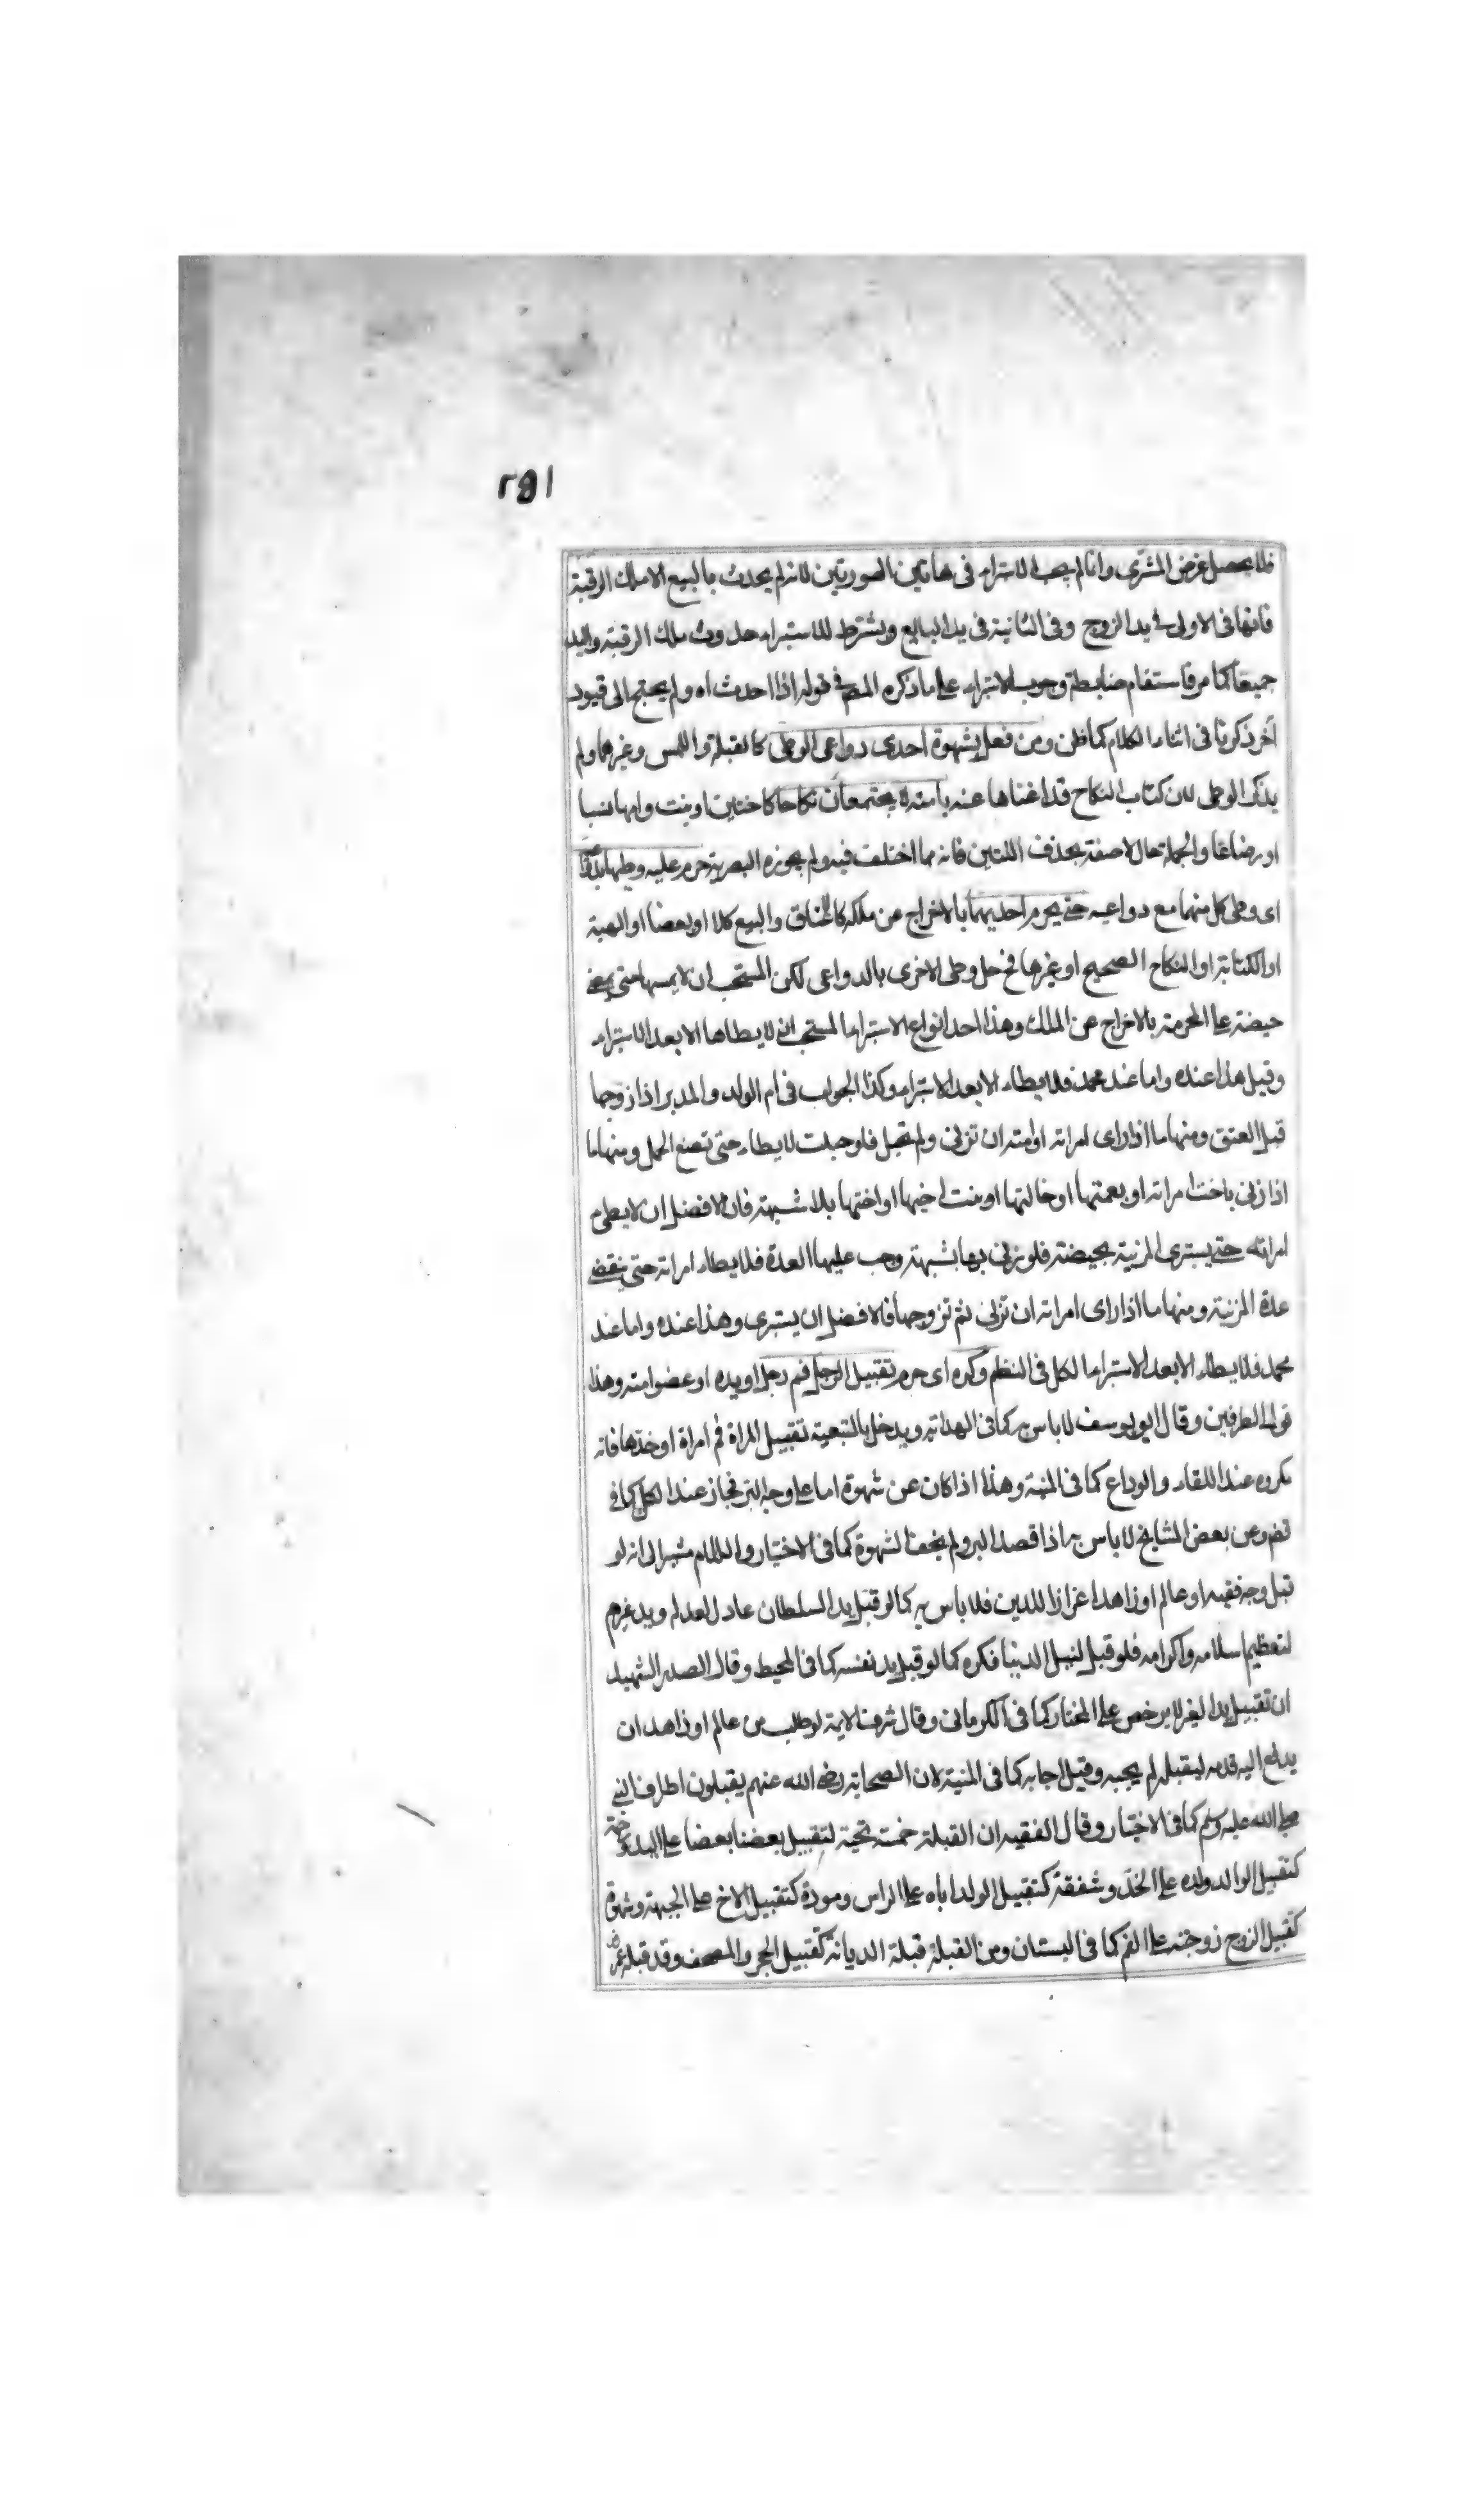 ٢٥١
فلا يحصل غرض المشترى وانما لم يجب الاستبراء فى هاتين الصورتين لانه لم يحدث بالبيع الا ملك الرقبة
فانها فى الاولى فى يد الزوج وفى الثانية فى يد البايع ويشترط للاستبراء حدوث ملك الرقبة واليد
جميعا كما مر فاستقام ضابطة وجوب الاستبراء على ما ذكره المص فى قوله اذا احدث اه ولم يحتج الى قيود
آخر ذكرنا فى اثناء الكلام كما ظن ومن فعل بشهوة احدى دواعى الوطى كالقبلة واللمس وغيرهما ولم
يذكر الوطى لان كتاب النكاح قد اغناها عنه بامته لا يجتمعان نكاحا كاختين او بنت وامها نسبا
او رضاعا والجملة حال لا صفة بحذف اللتين فانه مما اختلف فيه ولم يجوزه البصرية حرم عليه وطيها
اى وطى كل منهما مع دواعيه حتى يحرم احديهما بالاخراج عن ملكه كالعتاق والبيع كلا او بعضا او الهبة
او الكتابة او النكاح الصحيح او غيرها فح حل وطى الاخرى بالدواعى لكن المستحب ان لا يمسها حتى يمضى
حيضة على المحرمة بالاخراج عن الملك وهذا احد انواع الاستبراء المستحب انه لا يطاها الا بعد الاستبراء
وقيل هذا عنده واما عند محمد فلا يطاء الا بعد الاستبراء وكذا الجواب فى ام الولد والمدبر اذا زوجها
قبل العتق ومنها ما اذا راى امراته او امته ان تزنى ولم تحبل فلو حبلت لا يطاء حتى تضع الحمل ومنها ما
اذا زنى باخت امراته او بعمتها او خالتها او بنت اخيها او اختها بلا شبهة فان الافضل ان لا يطى
امراته حتى يستبرى المزنية بحيضة فلو زنى بها بشبهة وجب عليها العدة فلا يطاء امراته حتى ينقضى
عدة المزنية ومنها ما اذا راى امراته ان تزنى ثم تزوجها فالافضل ان يستبرى وهذا عنده واما عند
محمد فلا يطاء الا بعد الاستبراء الكل فى النظم وكره اى حرم تقبيل الرجل فم رجل او يده او عضوا منه وهذا
قول الطرفين وقال ابو يوسف لا باس به كما فى الهداية ويدخل بالتبعية تقبيل المراة فم امراة او خدها فانه
مكروه عند اللقاء والوداع كما فى المنية وهذا اذا كان عن شهوة اما على وجه البر فجاز عند الكل كما فى
وعن بعض المشايخ لا باس به اذا قصد البر ولم يخف الشهوة كما فى الاختيار والكلام مشير الى انه لو
قبل وجه فقيه او عالم او زاهد اعزازا للدين فلا باس به كما لو قبل يد السلطان عادل لعدله ويد غيرهم
لتعظيم اسلامه واكرامه فلو قبل لنيل الدنيا فكره كما لو قبل يد نفسه كما فى المحيط وقال الصدر الشهيد
ان تقبيل يد الغير لا يرخص على المختار كما فى الكرمانى وقال شرف الايمة لو طلب من عالم او زاهد ان
يدفع اليه قدمه ليقبله لم يجبه وقيل اجابه كما فى المنية لان الصحابة رضى الله عنهم يقبلون اطراف النبى
صلى الله عليه وسلم كما فى الاختيار وقال الفقيه ان القبلة خمسة تحية لتقبيل بعضنا بعضا على اليد ورحمة
كتقبيل الوالد ولده على الخد وشفقة كتقبيل الولد اباه على الراس ومودة كتقبيل الاخ على الجبهة وشهوة
كتقبيل الزوج زوجته على الفم كما فى البستان ومن القبلة قبلة الديانة كتقبيل الحجر والمصحف وقد قبله عمر